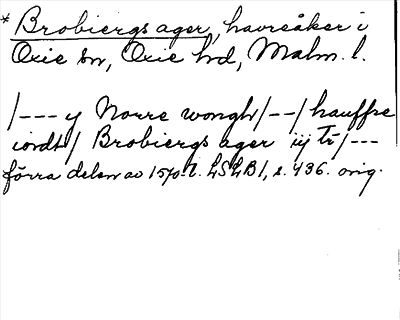 * Brobiergs ager, havreåker i
Oxie sn, Oxie hd, Malm. l.
/--- y Norre wongh/--/ hauffre
iordt/ Brobiergs ager iij Tr/---
förra delen av 1570-t. LSLB1, s. 436. orig.